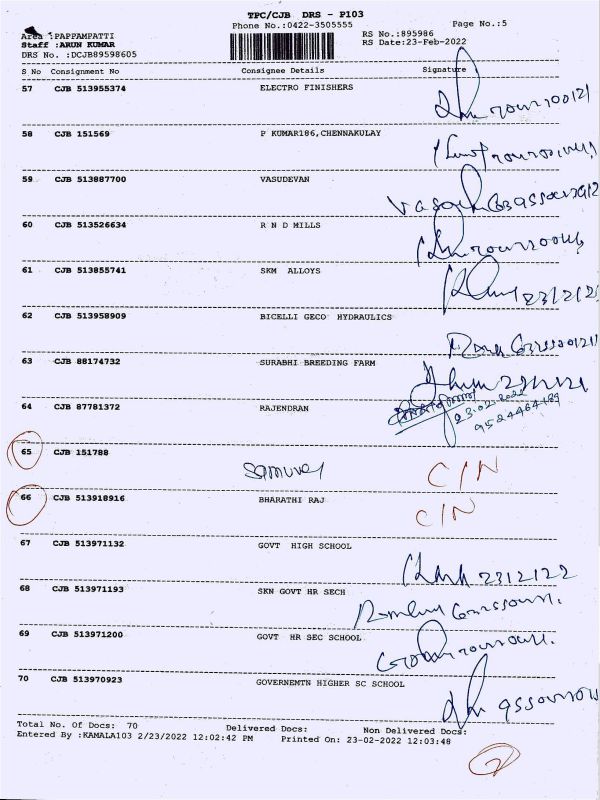 TPC/CJB DRS - P103
Phone No.:0422-3505555
Page No.:5
Area :PAPPAMPATTI
Staff :ARUN KUMAR
DRS No. :DCJB89598605
RS No.:895986
RS Date:23-Feb-2022
S No Consignment No Consignee Details Signature
57 CJB 513955374 ELECTRO FINISHERS
58 CJB 151569 P KUMAR186,CHENNAKULAY
59 CJB 513887700 VASUDEVAN
60 CJB 513526634 R N D MILLS
61 CJB 513855741 SKM ALLOYS
23/2/2
62 CJB 513958909 BICELLI GECO HYDRAULICS
63 CJB 88174732 SURABHI BREEDING FARM
64 CJB 87781372 RAJENDRAN
23.02.2022
9524464189
65 CJB 151788 C/N
66 CJB 513918916 BHARATHI RAJ C/N
67 CJB 513971132 GOVT HIGH SCHOOL
68 CJB 513971193 SKN GOVT HR SECH
69 CJB 513971200 GOVT HR SEC SCHOOL
70 CJB 513970923 GOVERNEMTN HIGHER SC SCHOOL
Total No. Of Docs: 70 Delivered Docs: Non Delivered Docs:
Entered By :KAMALA103 2/23/2022 12:02:42 PM Printed On: 23-02-2022 12:03:48